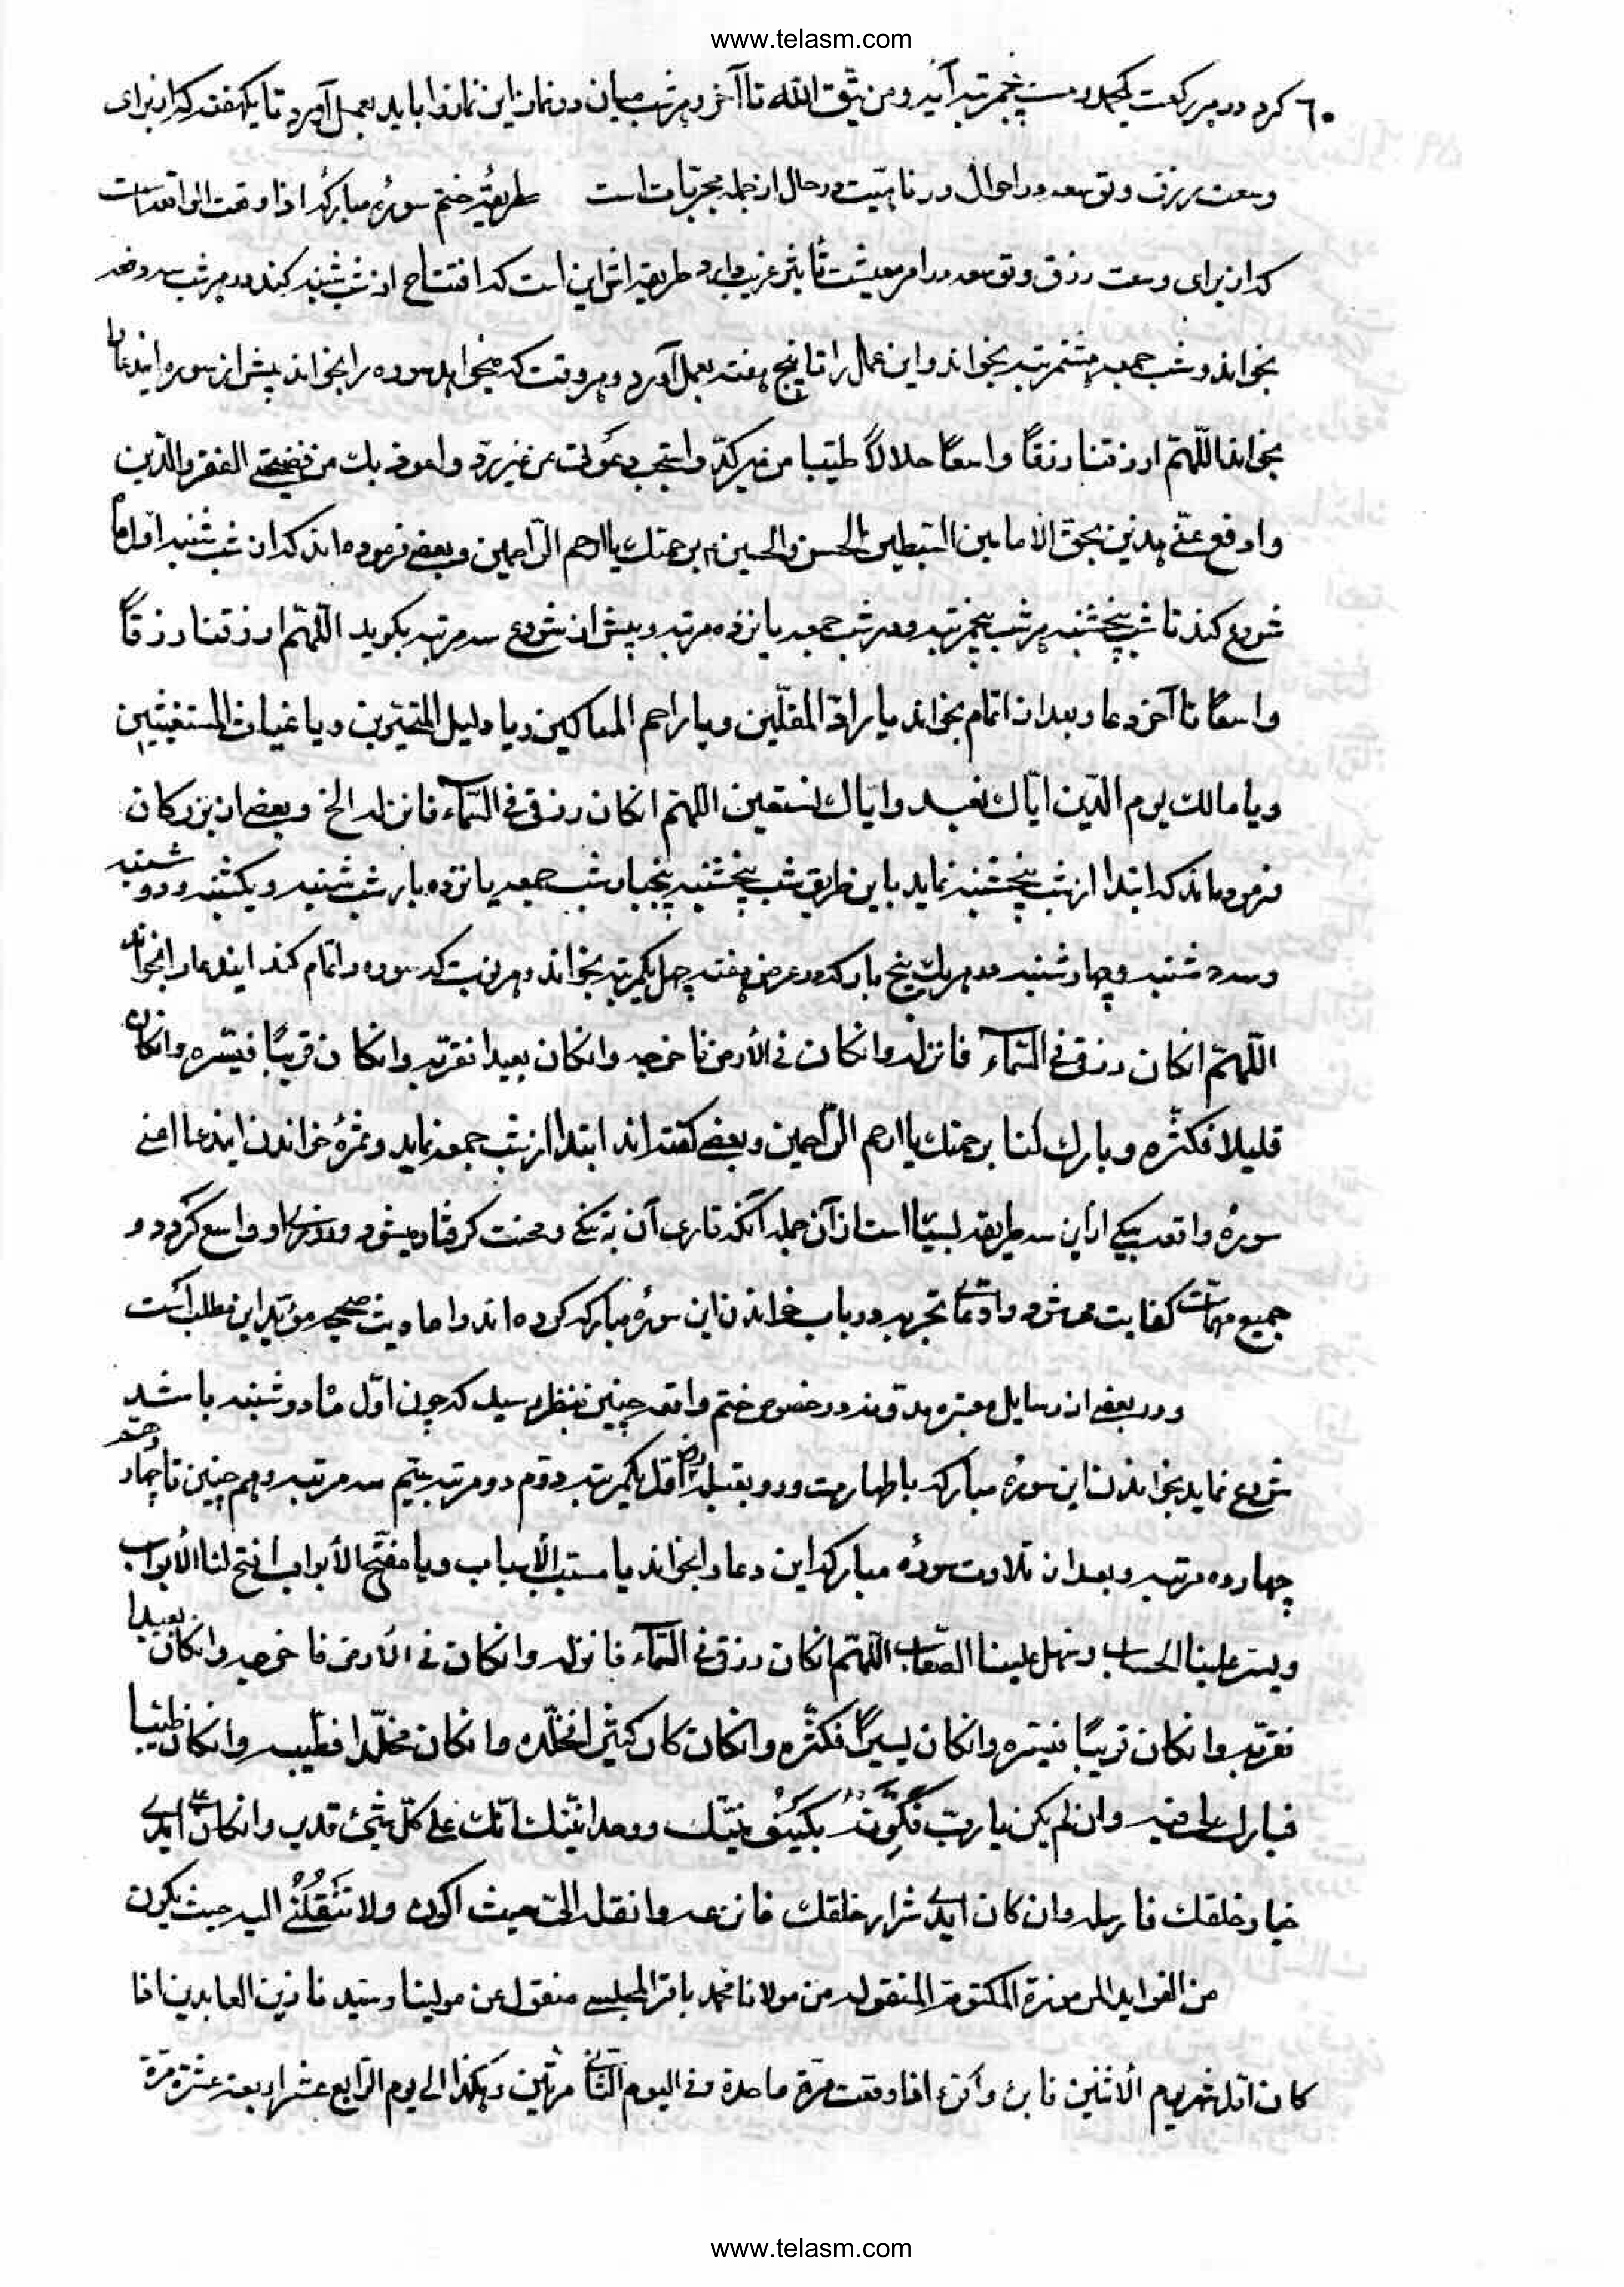 www.telasm.com
٦٠ کرد در هر رکعت یکحمد و بیست و پنجمرتبه آیه و من یتق الله تا آخر و هر شب میان دو نماز این نماز را باید بعمل آورد تا یکهفته که از برای
وسعت رزق و توسعه در احوال و رفاهیت در حال از جمله مجربات است طریقهٔ ختم سورهٔ مبارکهٔ اذا وقعت الواقعه است
که از برای وسعت رزق و توسعه در امر معیشت تأثیر غریب دارد طریقه اش این است که افتتاح از شب شنبه کند در هر شب سه دفعه
بخواند و شب جمعه هشتمرتبه بخواند و این عمل را تا پنج هفته بعمل آورد و هر وقت که میخواهد سوره را بخواند پیش از سوره ایندعا را
بخواند اللّهمّ ارزقنا رزقاً واسعاً حلالاً طیّبا من غیر کدّ و استجب دعوتی من غیر ردّ و اعوذ بك من فضیحتی الفقر و الدّین
و ادفع عنّی هذین بحق الامامین السّبطین الحسن و الحسین برحمتك یا ارحم الرّاحمین و بعضی فرموده اند که از شب شنبه اوّل ماه
شروع کند تا شب پنجشنبه هر شب پنجمرتبه و در شب جمعه یازده مرتبه و پیش از شروع سه مرتبه بگوید اللّهمّ ارزقنا رزقاً
واسعاً تا آخر دعا و بعد از اتمام بخواند یا رازق المقلّین و یا راحم المساکین و یا دلیل المتحیّرین و یا غیاث المستغیثین
و یا مالك یوم الدّین ایّاك نعبد و ایّاك نستعین اللّهمّ انکان رزقی فی السّمآء فانزله الخ و بعضی از بزرکان
فرموده اند که ابتدا از شب پنجشنبه نماید باین طریق شب پنجشنبه پنجبار شب جمعه یازده بار شب شنبه و یکشنبه و دو شنبه
و سه شنبه و چهار شنبه هر یك پنج بار که در عرض هفته چهل یکمرتبه بخواند و هر نوبت که سوره را تمام کند ایندعا را بخواند
اللّهمّ انکان رزقی فی السّمآء فانزله و انکان فی الأرض فاخرجه و انکان بعیدا فقرّبه و انکان قریبًا فیسّره و انکان
قلیلا فکثّره و بارك لنا برحمتك یا ارحم الرّاحمین و بعضی کفته اند ابتدا از شب جمعه نماید و ثمرهٔ خواندن ایندعا اعنی
سورهٔ واقعه بیکی از این سه طریقه بسیار است از آن جمله آنکه قاری آن به تنگی و محنت گرفتار نمیشود و رزق او واسع گردد و
جمیع مهمّات کفایت میشود و ادّعای تجربه در باب خواندن این سورهٔ مبارکه کرده اند و احادیث صحیحه مؤید این مطلب است
و در بعضی از رسایل معتبره مدوّنه در خصوص ختم واقعه چنین بنظر رسیده که چون اوّل ماه دوشنبه باشد
شروع نماید بخواندن این سورهٔ مبارکه با طهارت و رو بقبله روز اوّل یکمرتبه دوّم دو مرتبه سیّم سه مرتبه و هم چنین تا چهارده
چهارده مرتبه و بعد از تلاوت سورهٔ مبارکه این دعا را بخواند یا مسبّب الأسباب و یا مفتّح الأبواب افتح لنا الأبواب
و یسّر علینا الحساب و سهّل علینا الصّعاب اللّهمّ انکان رزقی فی السّمآء فانزله و انکان فی الأرض فاخرجه و انکان بعیدا
فقرّبه و انکان قریبًا فیسّره و انکان یسیرًا فکثّره و انکان کان کثیرا فخلّده و انکان مخلّدا فطیّبه و انکان طیّبا
فبارك لی فیه و ان لم یکن یا ربّ فکوّنه بکینونیّتك و وحدانیّتك انّك علی کلّ شیْ قدیر و انکان علی ایدی
خیار خلقك فارسله و ان کان علی ایدی شرار خلقك فانزعه و انقله الیّ حیث اکون و لا تنقلنی الیه حیث یکون
من الفواید المرموزة المکتومة المنقوله من مولانا محمد باقر المجلسی منقول عن مولینا و سیدنا زین العابدین اذا
کان اوّل شهر یوم الاثنین فابدأ و اقرء اذا وقعت مرّة واحدة و فی الیوم الثّانی مرتین و هکذا الی یوم الرّابع عشر اربعة عشرة مرّة
www.telasm.com